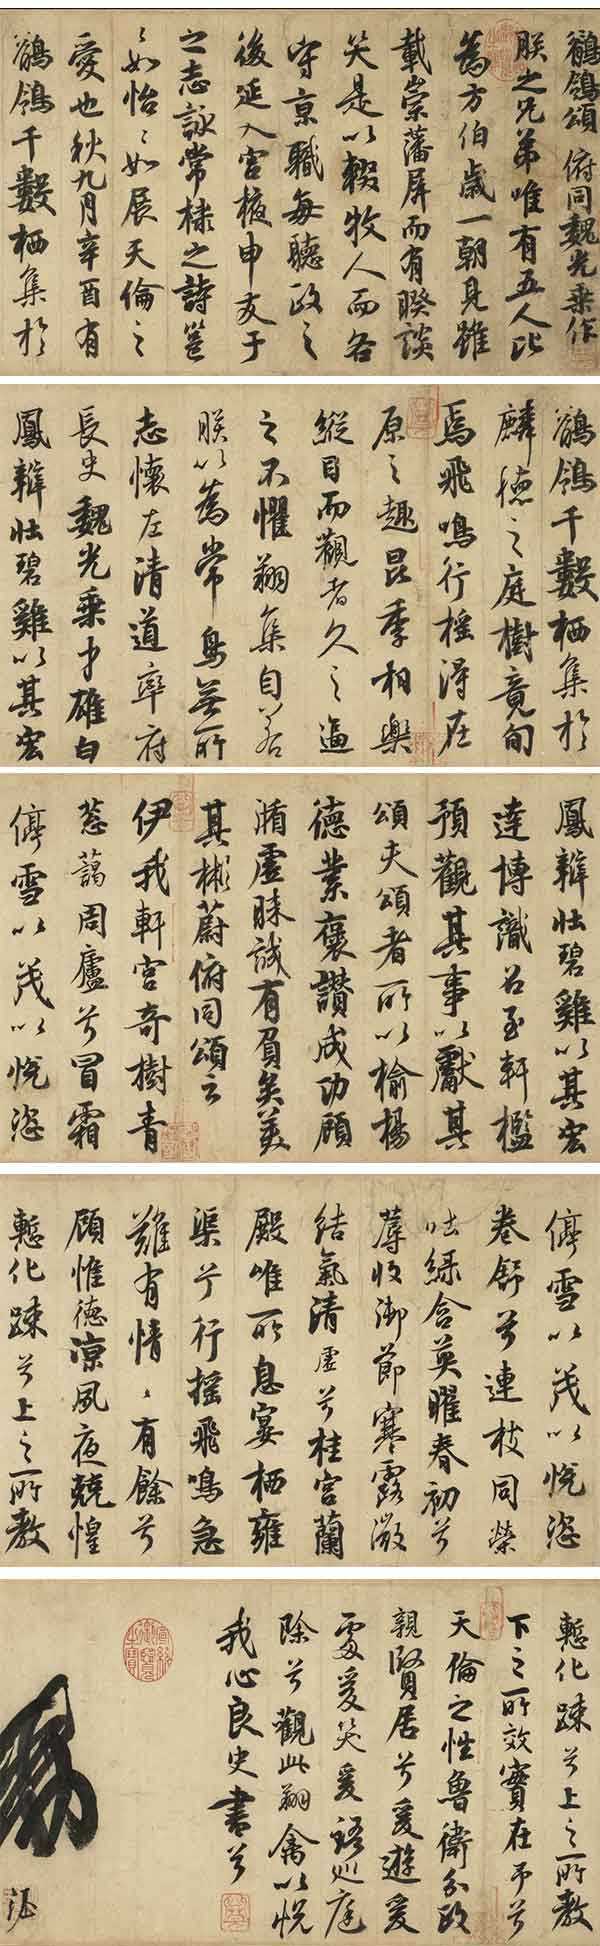 鶺鴒頌 俯同魏光乗作
朕之兄弟唯有五人比
為方伯歳一朝見雖
載崇藩屏而有暌談
笑是以輟牧人而各
守京職每聽政之
後延入宮掖申友于
之志詠常棣之詩邕
邕如怡怡如展天倫之
愛也秋九月辛酉有
鶺鴒千數栖集於
鶺鴒千數栖集於
麟德之庭樹竟旬
焉飛鳴行搖得在
原之趣昆季相樂
縱目而觀者久之逼
之不懼翔集自若
朕以為常鳥無所
志懷左清道率府
長史魏光乗才雄白
鳳辯壯碧雞以其宏
鳳辯壯碧雞以其宏
達博識召至軒檻
預觀其事以獻其
頌夫頌者所以揄揚
德業褒讚成功顧
循虛昧誠有負矣美
其彬蔚俯同頌云
伊我軒宮奇樹青
蔥藹周廬兮冒霜
停雪以茂以悅恣
停雪以茂以悅恣
卷舒兮連枝同榮
吐綠含英曜春初兮
蓐收御節寒露微
結氣清虛兮桂宮蘭
殿唯所息宴栖雍
渠兮行搖飛鳴急
難有情情有餘兮
顧惟德涼夙夜兢惶
慙化疎兮上之所教
慙化疎兮上之所教
下之所效實在予兮
天倫之性魯衛分政
親賢居兮爰遊爰
處爰笑爰語巡庭
除兮觀此翔禽以悅
我心良史書兮